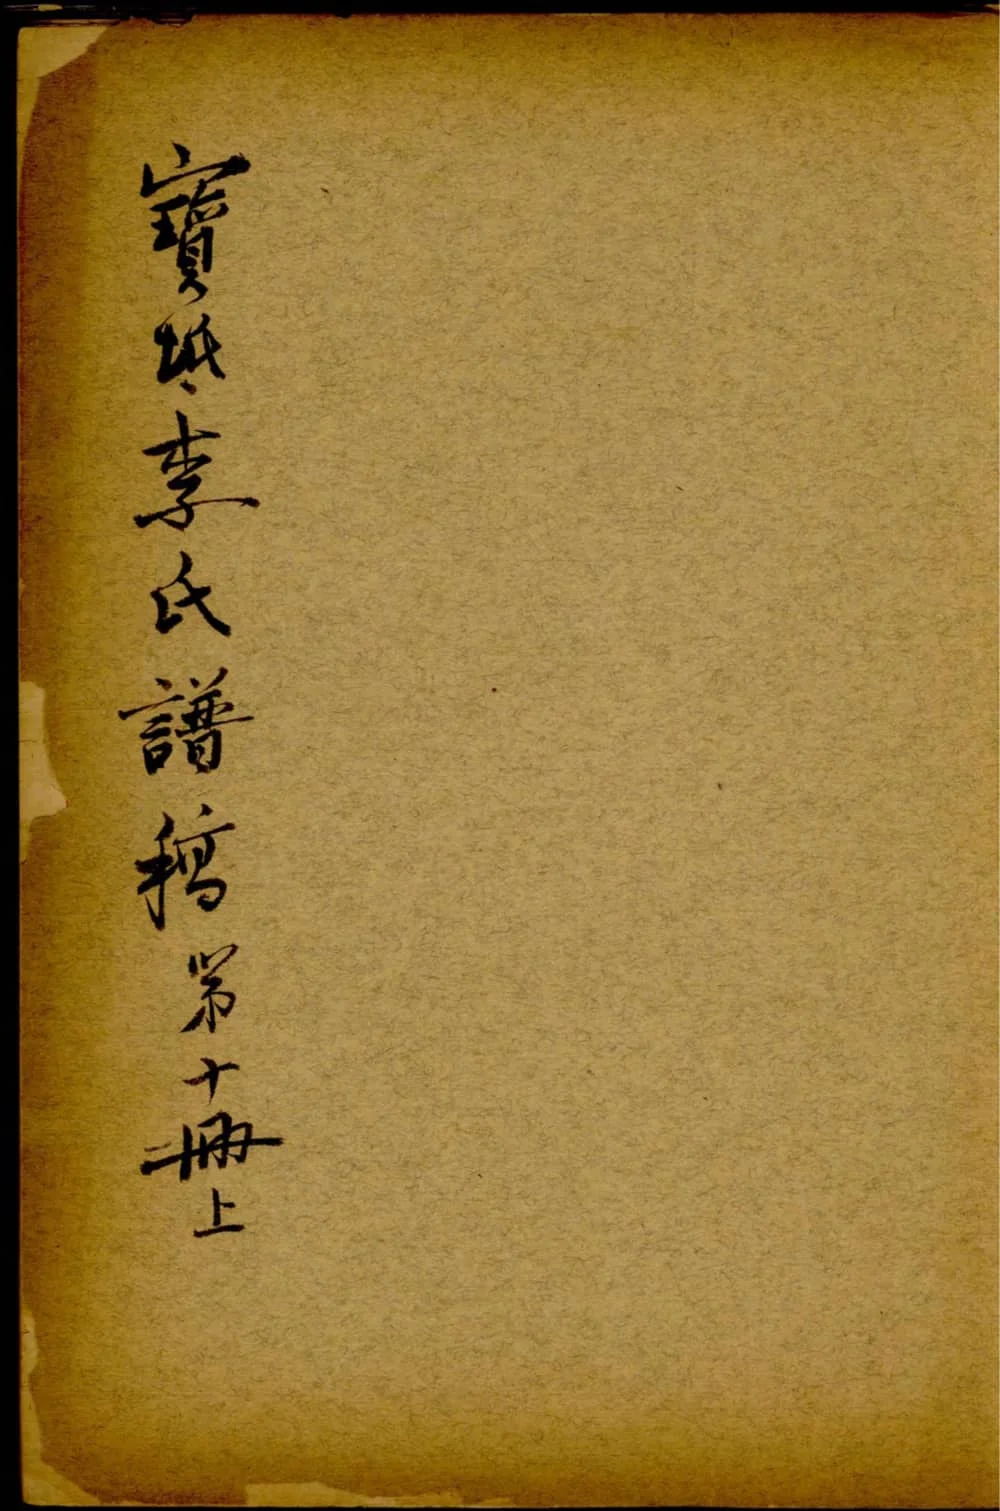 寶坻李氏譜稿第十冊上